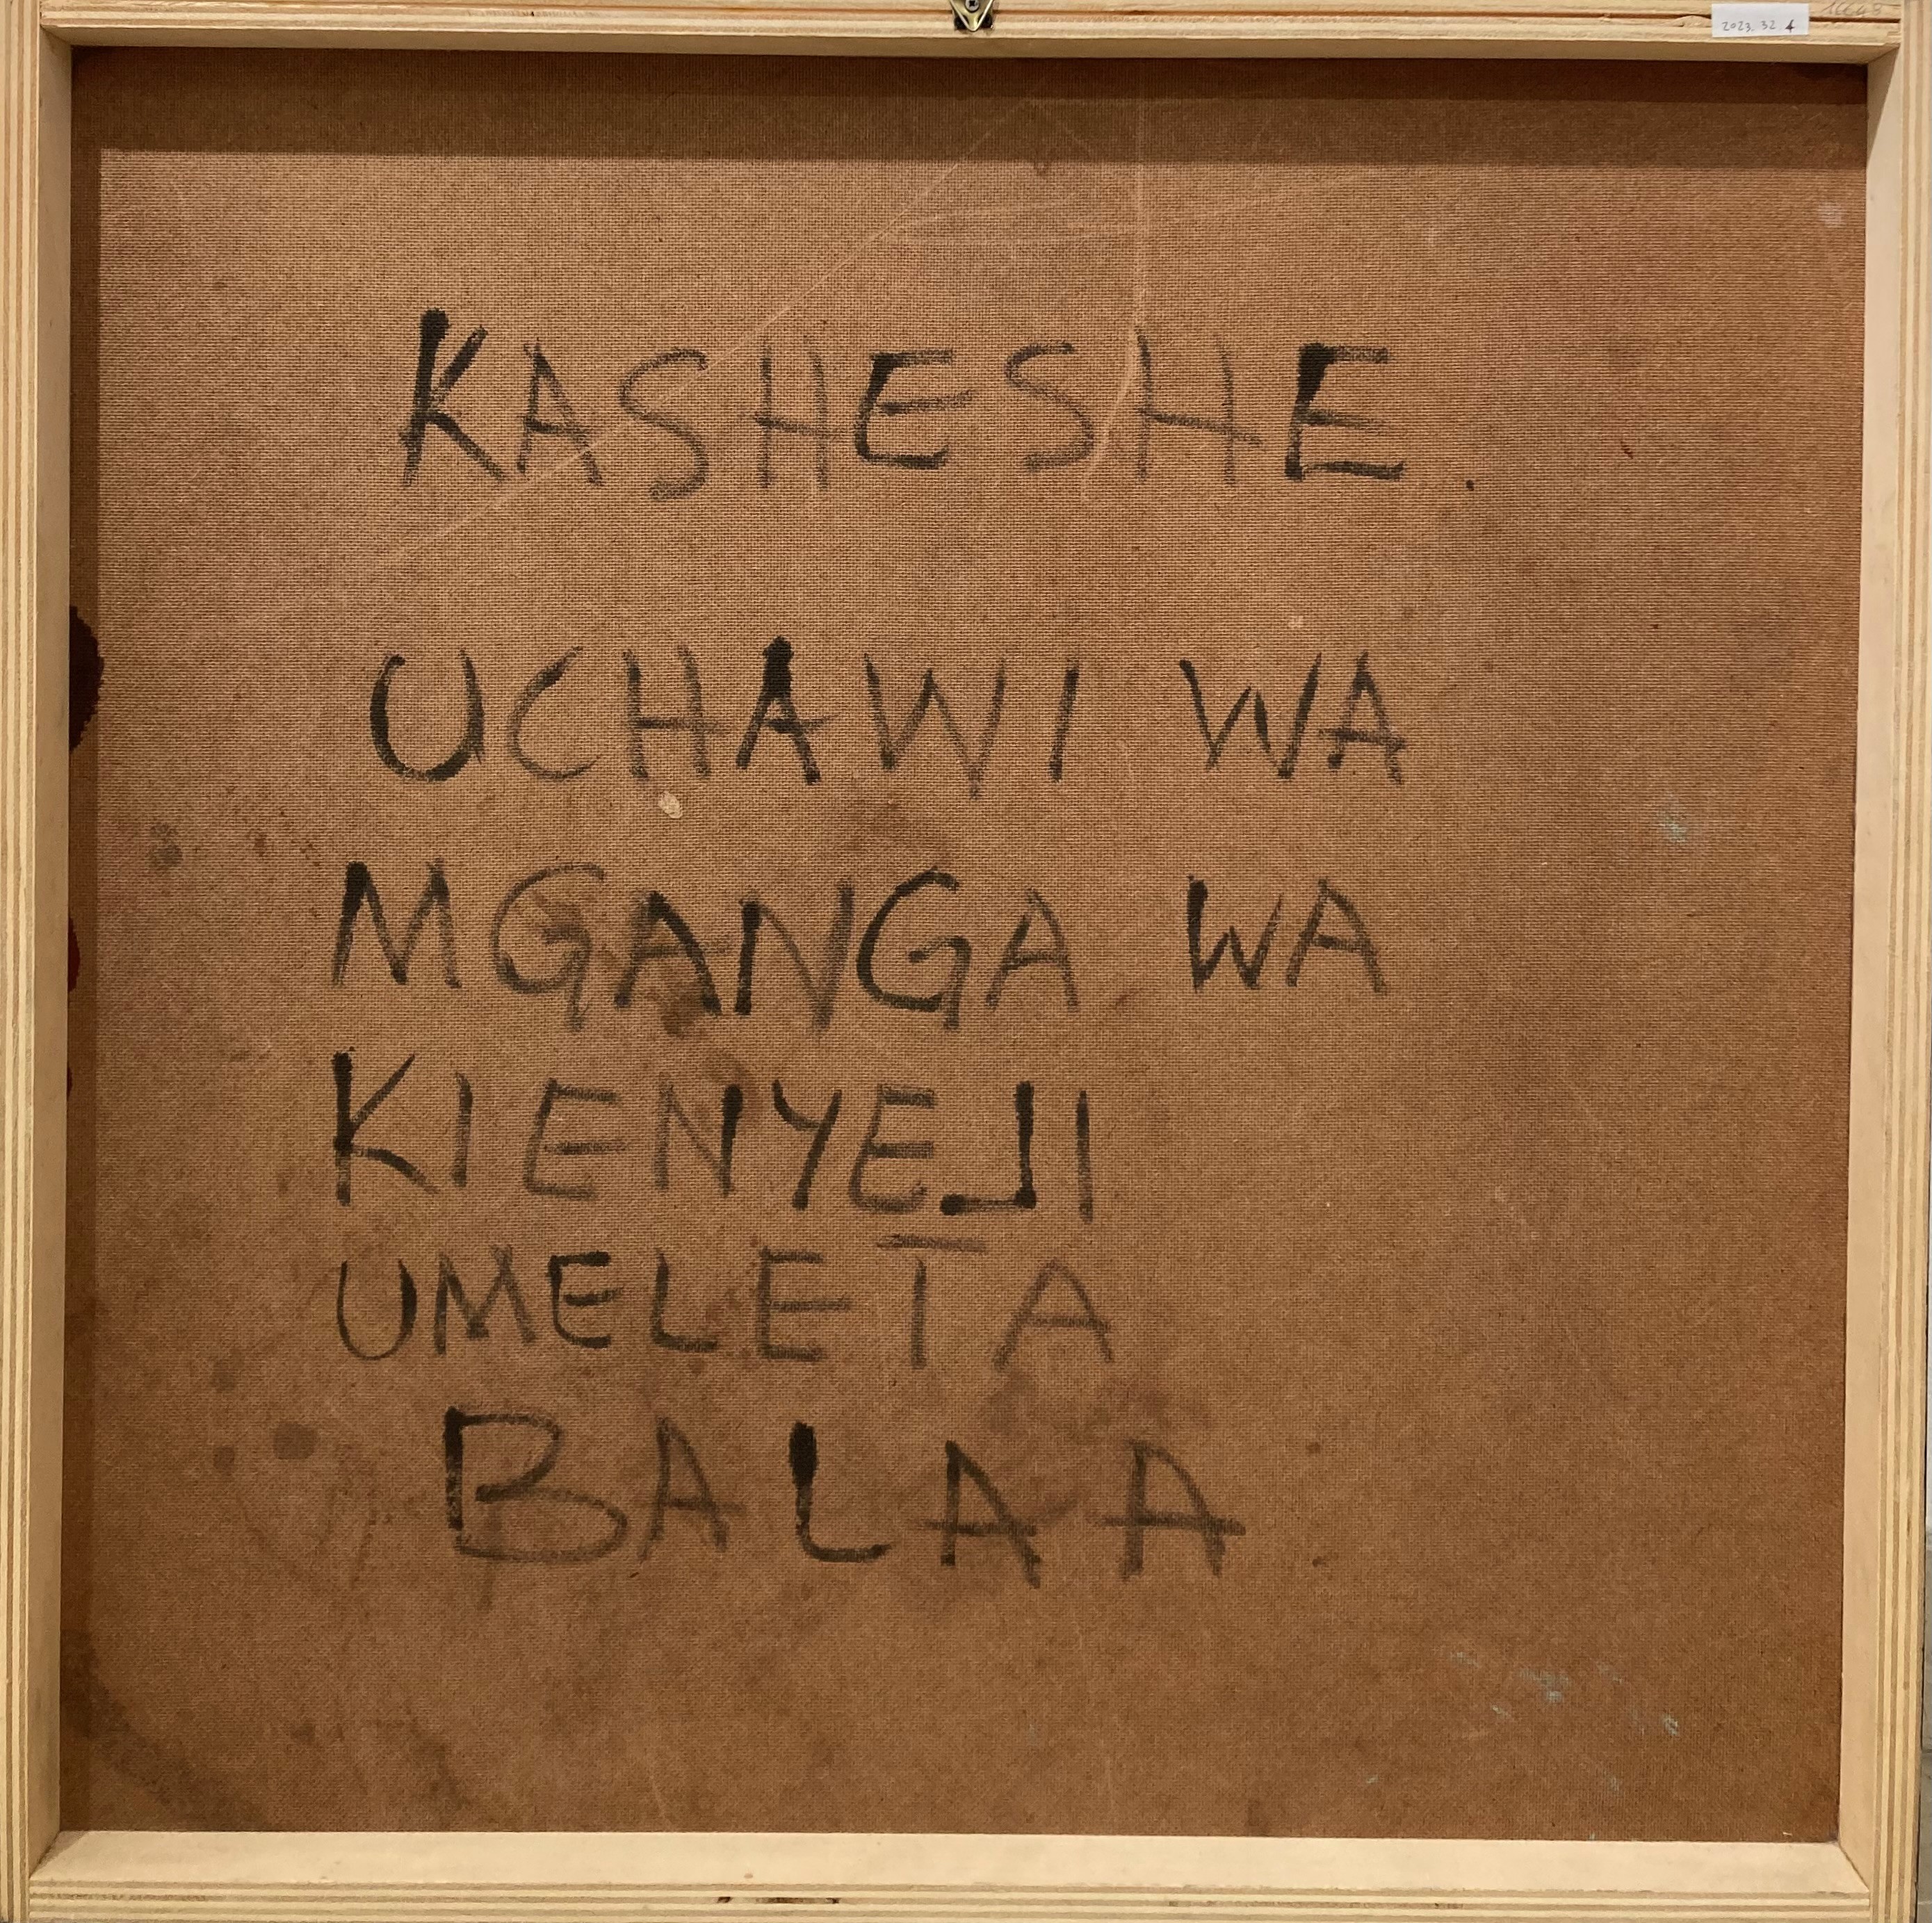 2023.32 4
KASHESHE.
UCHAWI WA
MGANGA WA
KIENYEJI
UMELETA
BALAA